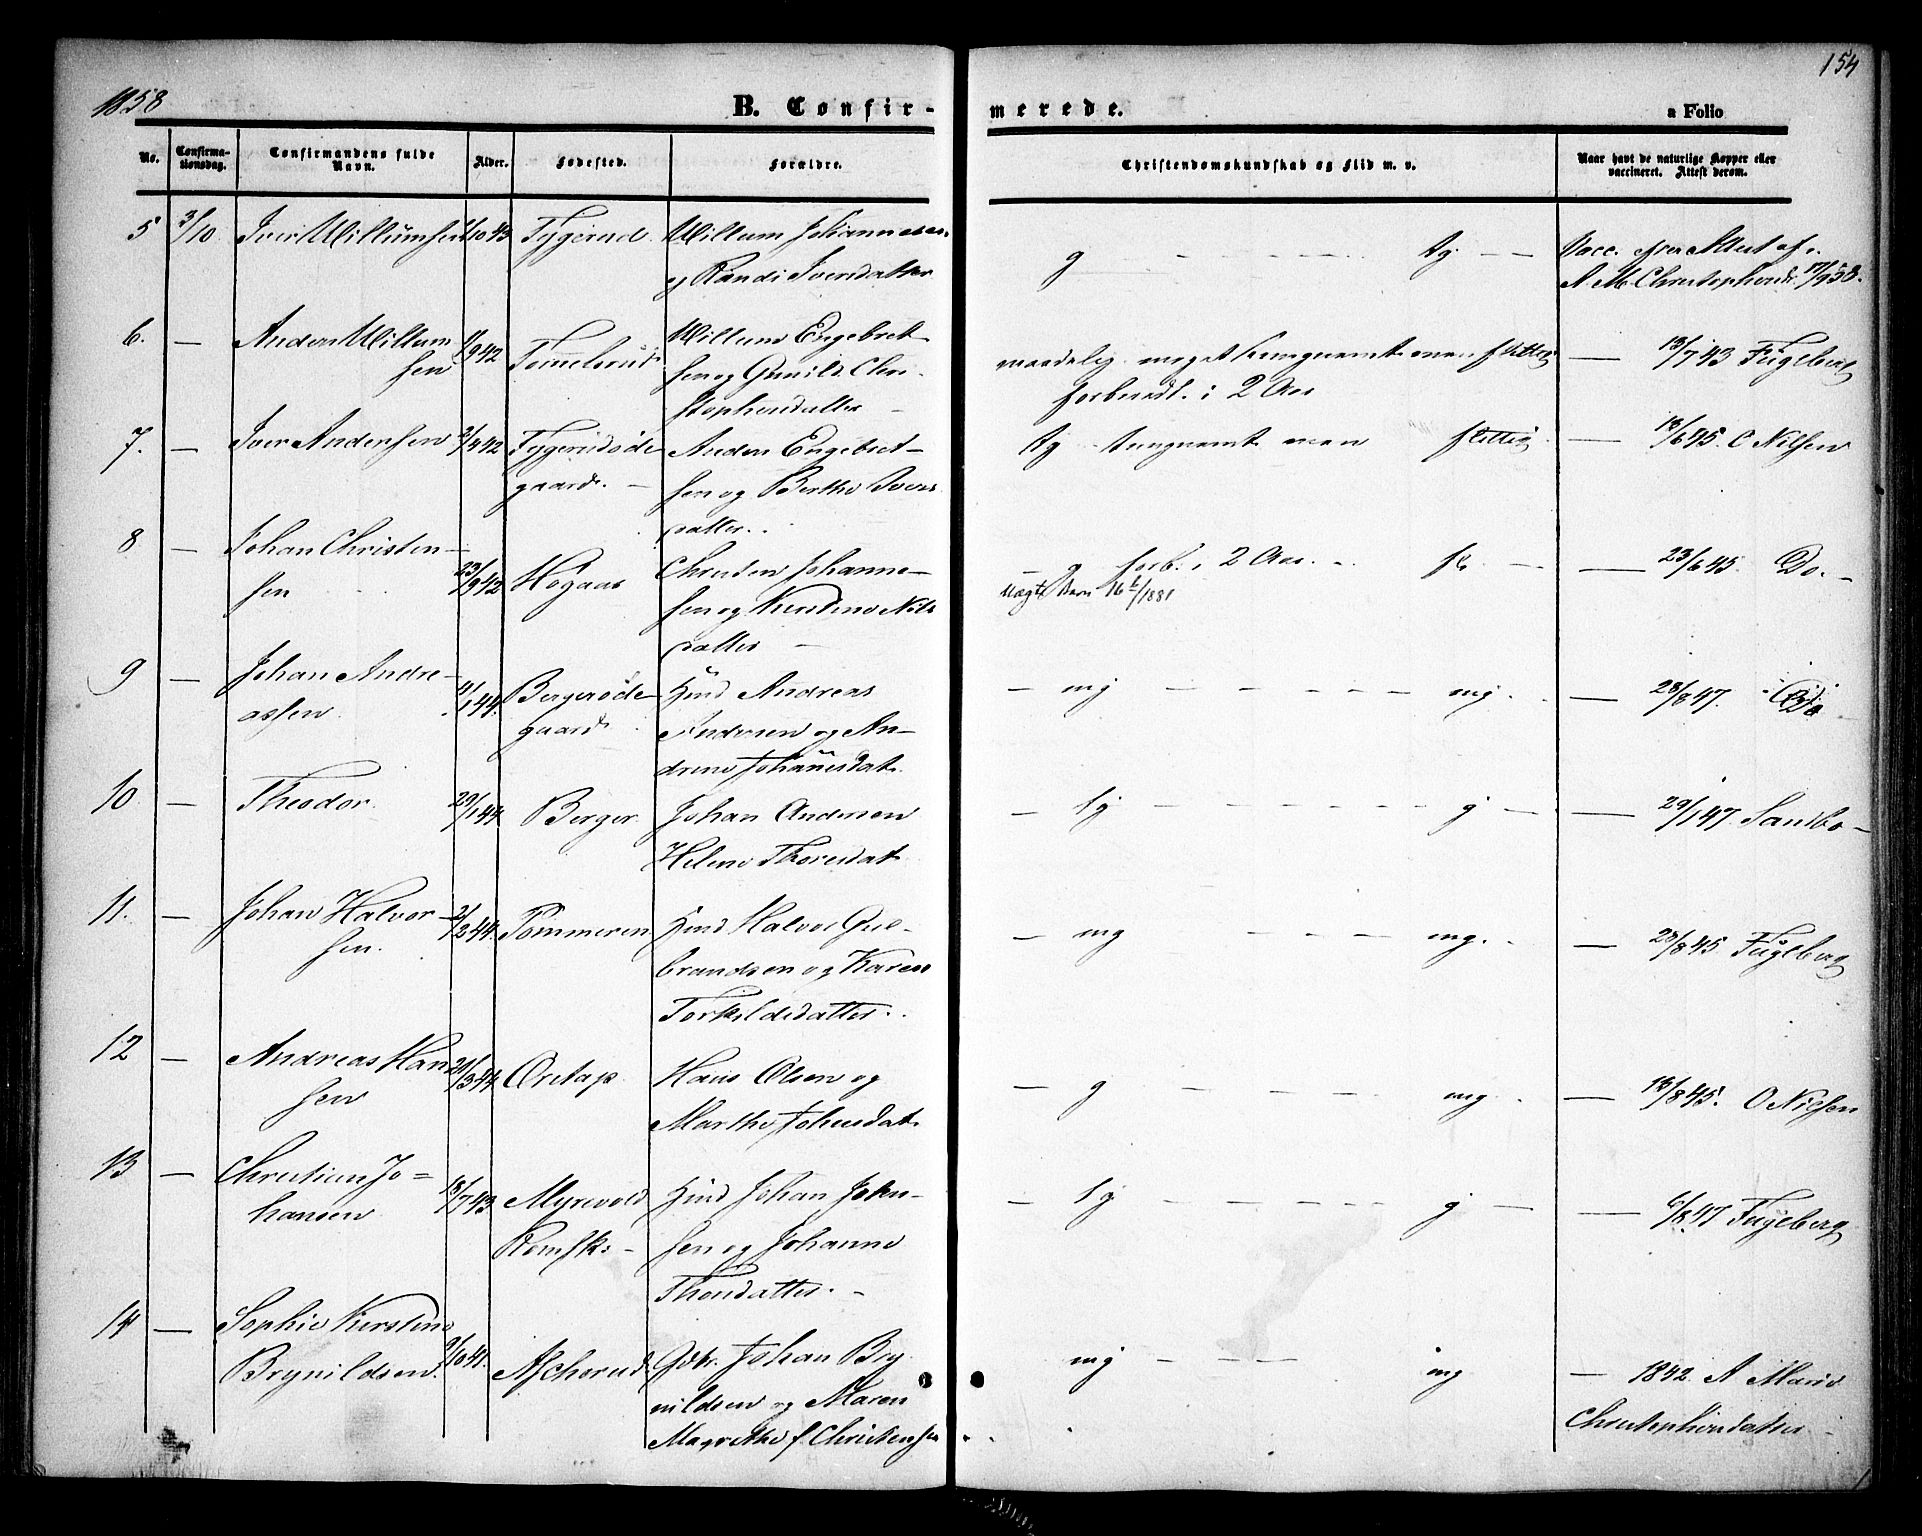 1858
154
B. Confirmerede.
a Folio
No.
Confirmationsdag.
Confirmandens fulde Navn.
Alder.
Fødested.
Forældre.
Christendomskundskab og Flid m. v.
Naar havt de naturlige Kopper eller vaccineret. Attest derom.
5 3/10 Iver Willumsen 10 43 Tygerud. Willum Johannesen
og Randi Iversdatter
g - - - - - tg - -
Vacc. efter Attest af
A. M. Christophersd. 17/9 58.
6. — Anders Willum
sen
9 42 Tømmelsrut Willum Engebret-
sen og Gunild Chri-
stophersdatter -
maadelig meget tungnemt men flittig
forberedt i 2 Aar
— 13/7 43 Fugleberg
7. — Iver Andersen 4 42 Tygerudøde
gaard. - Anders Engebret-
sen og Berthe Ivers
datter.
tg tungnemt men flittig
— 13/6 45. O Nilsen
8 — Johan Christen-
sen
23/9 42 Høgaas Christen Johanne-
sen og Kirstine Nils
datter —
— g forb. i 2 Aar. - fl. —
16/1881
— 23/6 45. Do. -
9 — Johan Andre-
assen
1 44. Bergerøde
gaard Hmd Andreas
Andersen og An-
drine Johannesdat.
— mg — — — — mg.
— 28/8 47. Do
10 — Theodor. 29/1 44 Berger. Johan Andersen
Helene Thoresdat
— tg — — — — g —
— 29/1 47 Sandbo-
11. — Johan Halvor-
sen.
2/2 44. Pommeren Hmd Halvor Gul-
brandsen og Karen
Torkildsdatter.
— mg — — — mg. -
— 28/8 45 Fugleberg
12 — Andreas Han
sen
3 44. Oretap Hans Olsen og
Marthe Johnsdat.
— g — — — mg
— 13/8 45. O Nilsen
13 — Christian Jo=
hansen
18/7 43 Myrevold
Romsk. - Hmd Johan John-
sen og Johanne
Thorsdatter. -
— tg — — — — g —
— 6/8 47 Fugleberg
14 — Sophie Kirstine
Brynildsen.
10 41. Ascherud. Gdbr. Johan Bry
nildsen og Maren
Magrethe f. Christensen
mg — — — mg
— 1842. A Marie
Christophersdatter -